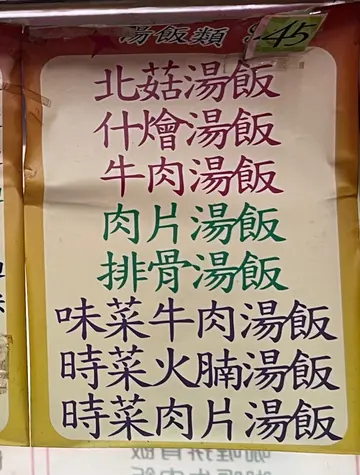 湯飯類 $45
北菇湯飯
什燴湯飯
牛肉湯飯
肉片湯飯
排骨湯飯
味菜牛肉湯飯
時菜火腩湯飯
時菜肉片湯飯